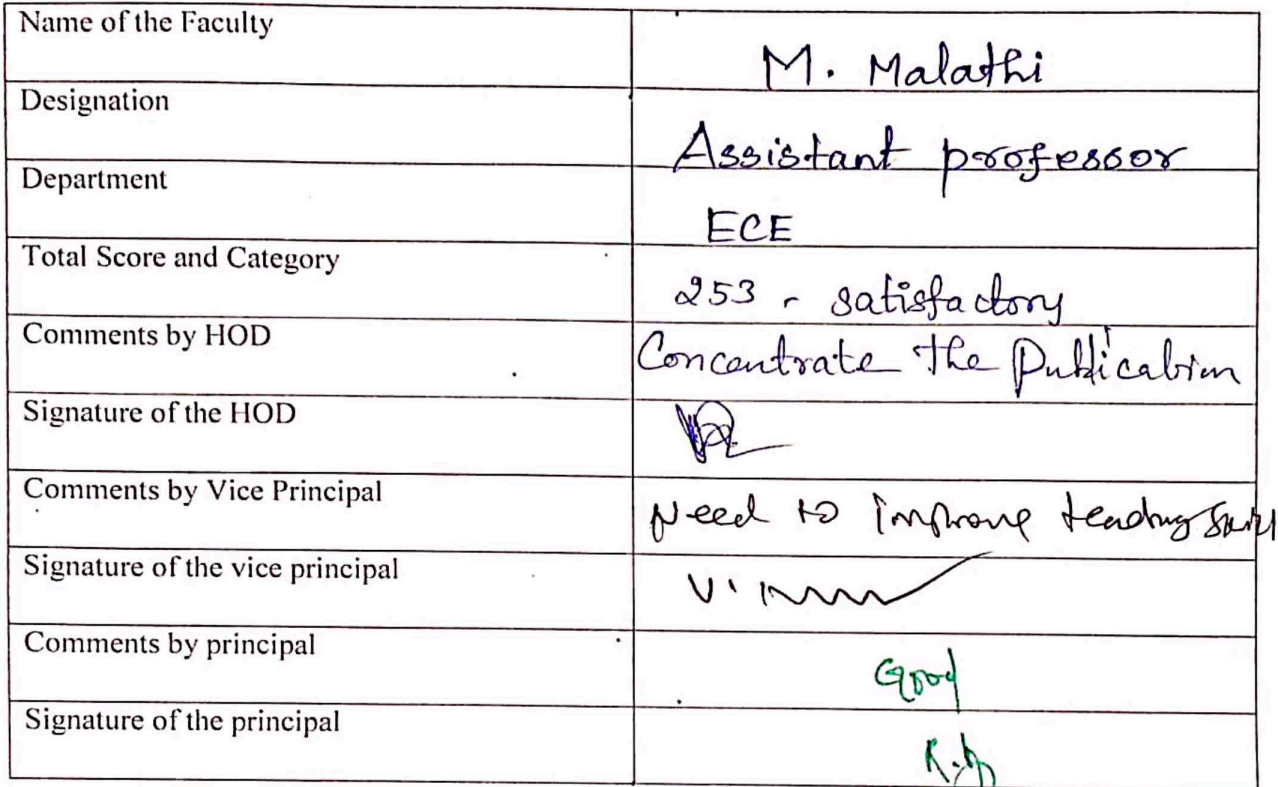 Name of the Faculty
M. Malathi
Designation
Assistant professor
Department
ECE
Total Score and Category
253 - satisfactory
Comments by HOD
Concentrate the Publication
Signature of the HOD
Comments by Vice Principal
Need to improve teaching skill
Signature of the vice principal
Comments by principal
Good
Signature of the principal